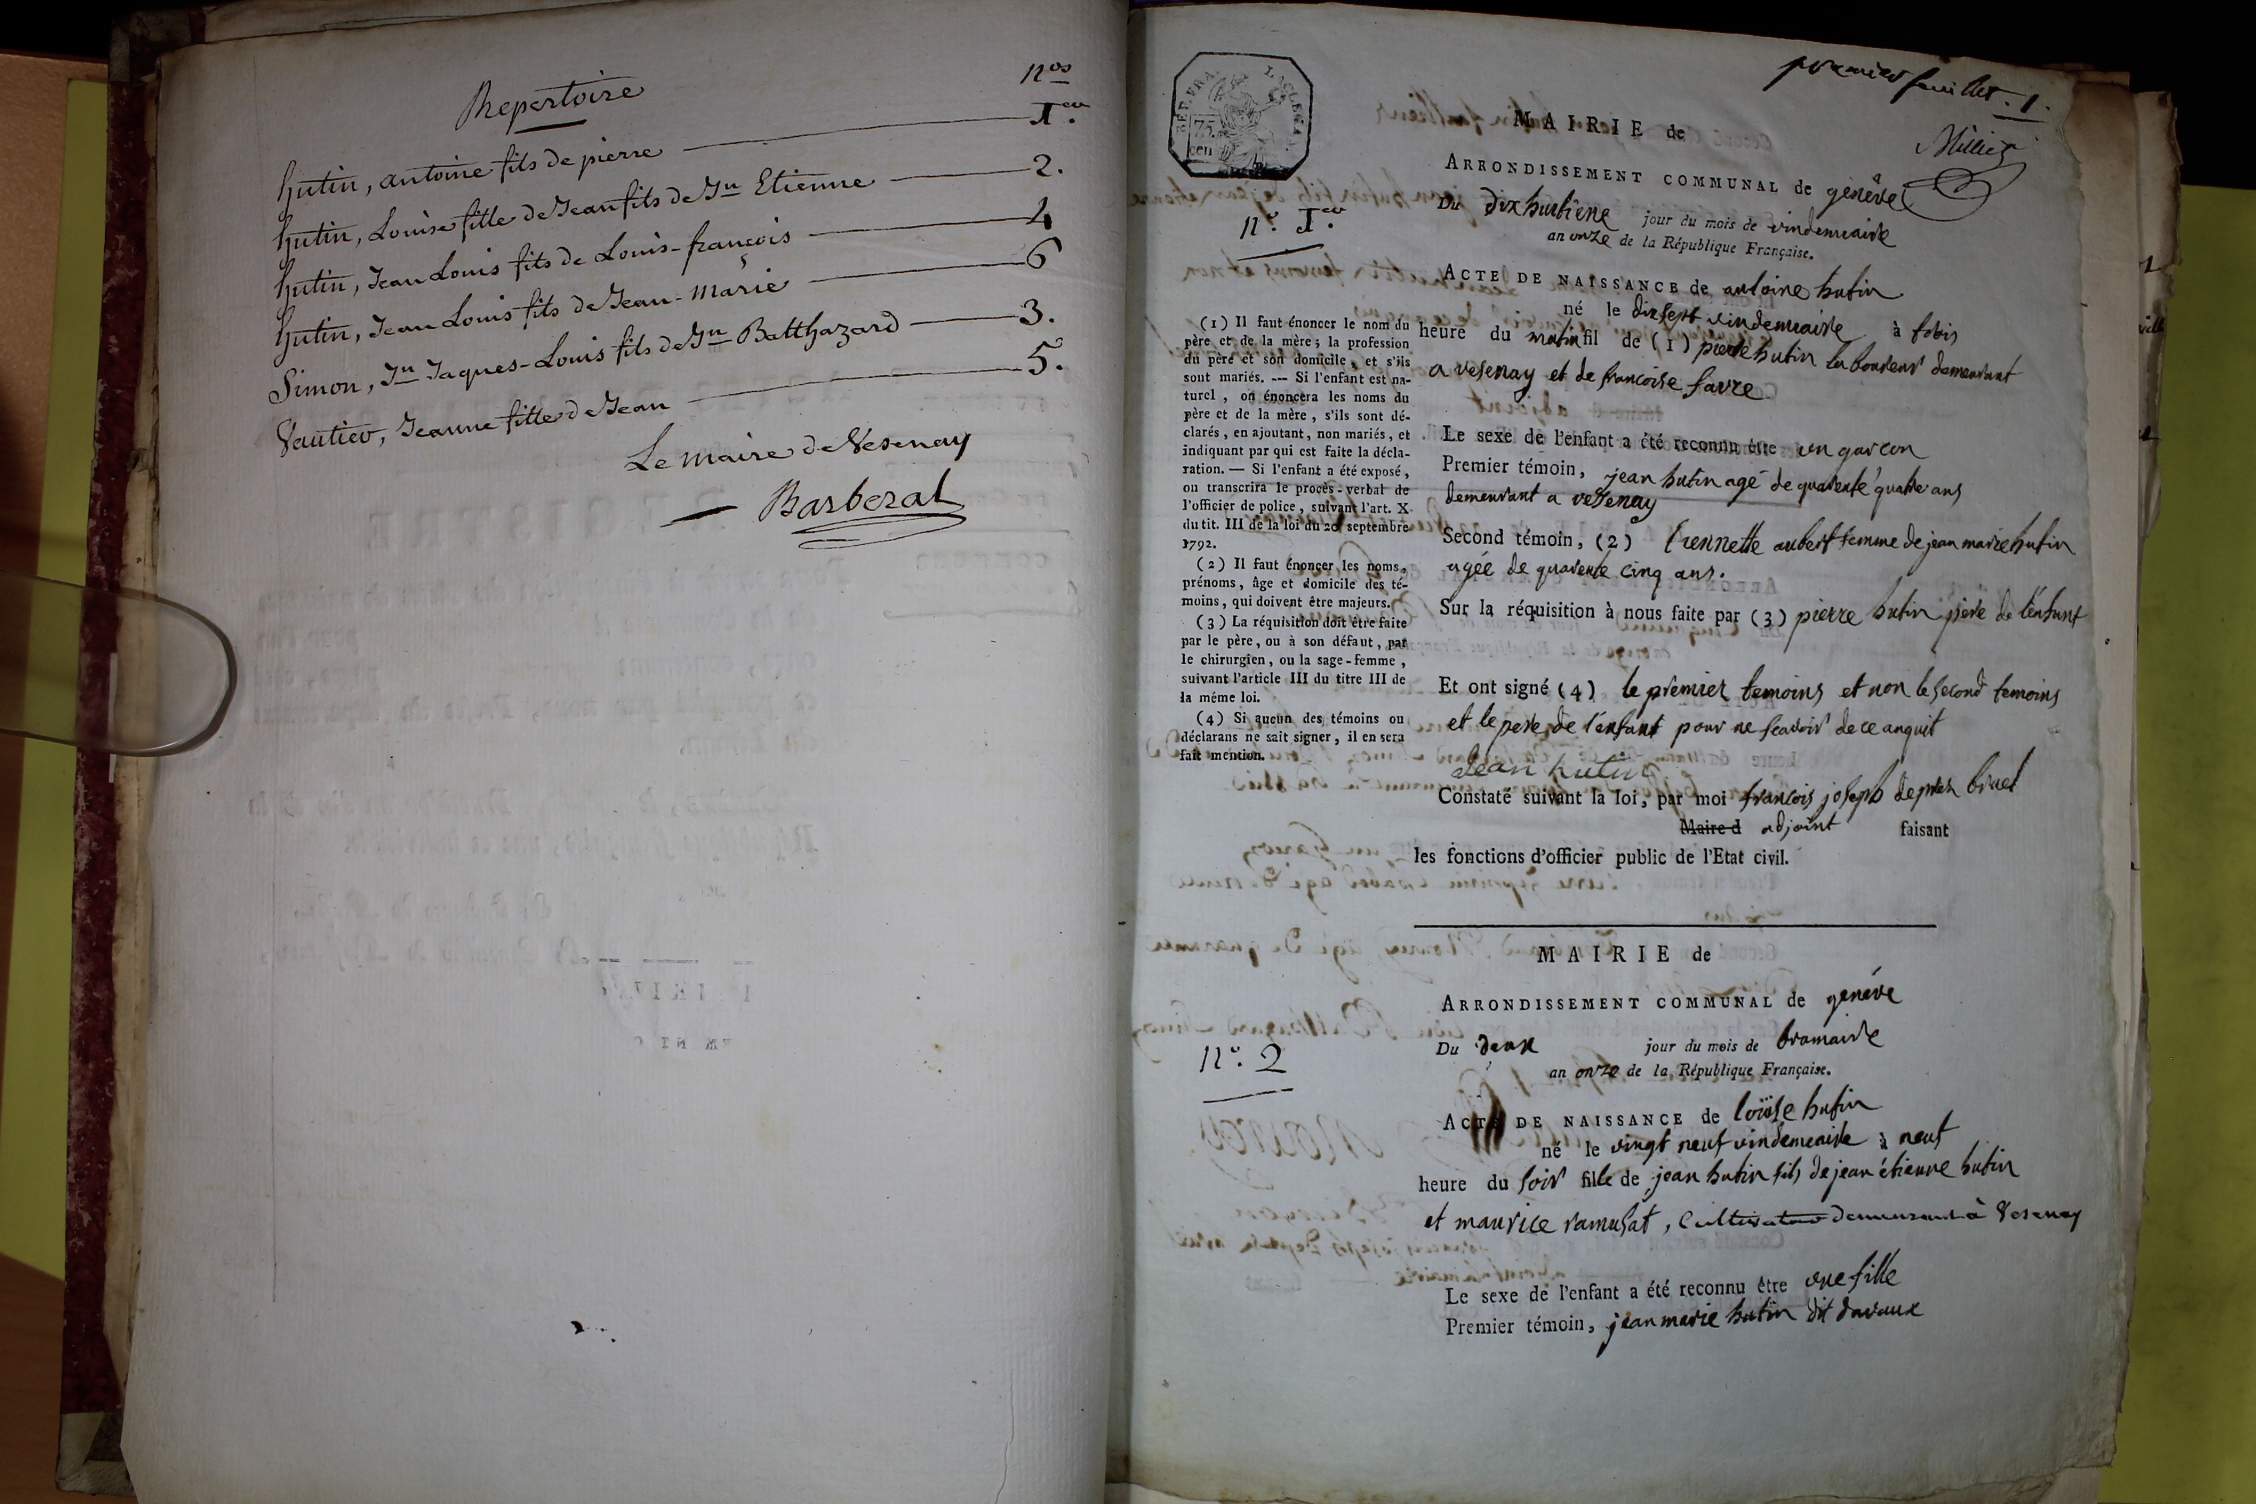 Repertoire
nos
hutin, antoine fils de pierre 1er.
hutin, Louise fille de Jean fils de Jn Etienne 2.
hutin, Jean Louis fils de Louis-françois 4
hutin, Jean Louis fils de Jean-Marie 6
Simon, Jn Jaques-Louis fils de Jn Balthazard 3.
Vautier, Jeanne fille de Jean 5.
Le maire de Vesenay
Barberat
premier feuillet. 1.
Milliet
REP. FRA.
75
cen
MAIRIE de
ARRONDISSEMENT COMMUNAL de genêve
n°. 1er.
Du dix huitiene jour du mois de vindemiaire
an onze de la République Française.
ACTE DE NAISSANCE de antoine hutin
né le dixsept vindemiaire à trois
heure du matin fil de (1) pierre hutin laboureur demeurant
a vesenay et de francoise favre
Le sexe de l'enfant a été reconnu être un garcon
Premier témoin, jean hutin agé de quarente quatre ans
demeurant a vesenay
Second témoin, (2) Etiennette aubert femme de jean marie hutin
agée de quarente cinq ans.
Sur la réquisition à nous faite par (3) pierre hutin pere de l'enfant
Et ont signé (4) le premier temoins et non le second temoins
et le pere de l'enfant pour ne scavoir de ce anquit
Jean hutin
Constaté suivant la loi, par moi francois joseph deprez bruel
Maire d adjoint faisant
les fonctions d'officier public de l'Etat civil.
(1) Il faut énoncer le nom du
père et de la mère; la profession
du père et son domicile, et s'ils
sont mariés. — Si l'enfant est na-
turel, on énoncera les noms du
père et de la mère, s'ils sont dé-
clarés, en ajoutant, non mariés, et
indiquant par qui est faite la décla-
ration. — Si l'enfant a été exposé,
on transcrira le procès-verbal de
l'officier de police, suivant l'art. X
du tit. III de la loi du 20 septembre
1792.
(2) Il faut énoncer les noms,
prénoms, âge et domicile des té-
moins, qui doivent être majeurs.
(3) La réquisition doit être faite
par le père, ou à son défaut, par
le chirurgien, ou la sage-femme,
suivant l'article III du titre III de
la même loi.
(4) Si aucun des témoins ou
déclarans ne sait signer, il en sera
fait mention.
MAIRIE de
ARRONDISSEMENT COMMUNAL de genéve
n°. 2
Du deux jour du mois de bromaire
an onze de la République Française.
ACTE DE NAISSANCE de loïise hutin
né le vingt neuf vindemiaire à neuf
heure du soir fille de jean hutin fils de jean étienne hutin
et maurice ramusat, Cultivateur demeurant à Vesenay
Le sexe de l'enfant a été reconnu être une fille
Premier témoin, jean marie hutin dit davaux